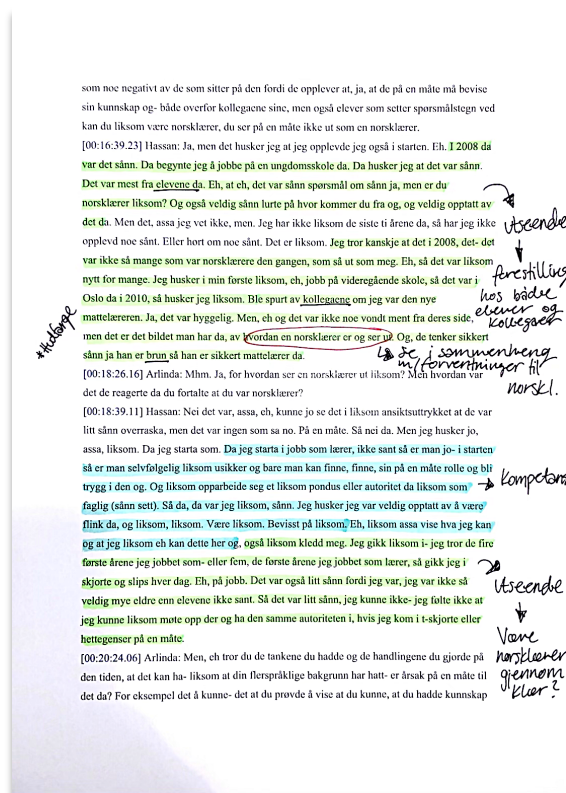 som noe negativt av de som sitter på den fordi de opplever at, ja, at de på en måte må bevise
sin kunnskap og- både overfor kollegaene sine, men også elever som setter spørsmålstegn ved
kan du liksom være norsklærer, du ser på en måte ikke ut som en norsklærer.
[00:16:39.23] Hassan: Ja, men det husker jeg at jeg opplevde jeg også i starten. Eh. I 2008 da
var det sånn. Da begynte jeg å jobbe på en ungdomsskole da. Da husker jeg at det var sånn.
Det var mest fra elevene da. Eh, at eh, det var sånn spørsmål om sånn ja, men er du
norsklærer liksom? Og også veldig sånn lurte på hvor kommer du fra og, og veldig opptatt av
det da. Men det, assa jeg vet ikke, men. Jeg har ikke liksom de siste ti årene da, så har jeg ikke
opplevd noe sånt. Eller hørt om noe sånt. Det er liksom. Jeg tror kanskje at det i 2008, det- det
var ikke så mange som var norsklærere den gangen, som så ut som meg. Eh, så det var liksom
nytt for mange. Jeg husker i min første liksom, eh, jobb på videregående skole, så det var i
Oslo da i 2010, så husker jeg liksom. Ble spurt av kollegaene om jeg var den nye
mattelæreren. Ja, det var hyggelig. Men, eh og det var ikke noe vondt ment fra deres side,
men det er det bildet man har da, av hvordan en norsklærer er og ser ut. Og, de tenker sikkert
sånn ja han er brun så han er sikkert mattelærer da.
[00:18:26.16] Arlinda: Mhm. Ja, for hvordan ser en norsklærer ut liksom? Men hvordan var
det de reagerte da du fortalte at du var norsklærer?
[00:18:39.11] Hassan: Nei det var, assa, eh, kunne jo se det i liksom ansiktsuttrykket at de var
litt sånn overraska, men det var ingen som sa no. På en måte. Så nei da. Men jeg husker jo,
assa, liksom. Da jeg starta som. Da jeg starta i jobb som lærer, ikke sant så er man jo- i starten
så er man selvfølgelig liksom usikker og bare man kan finne, finne, sin på en måte rolle og bli
trygg i den og. Og liksom opparbeide seg et liksom pondus eller autoritet da liksom som
faglig (sånn sett). Så da, da var jeg liksom, sånn. Jeg husker jeg var veldig opptatt av å være
flink da, og liksom, liksom. Være liksom. Bevisst på liksom. Eh, liksom assa vise hva jeg kan
og at jeg liksom eh kan dette her og, også liksom kledd meg. Jeg gikk liksom i- jeg tror de fire
første årene jeg jobbet som- eller fem, de første årene jeg jobbet som lærer, så gikk jeg i
skjorte og slips hver dag. Eh, på jobb. Det var også litt sånn fordi jeg var, jeg var ikke så
veldig mye eldre enn elevene ikke sant. Så det var litt sånn, jeg kunne ikke- jeg følte ikke at
jeg kunne liksom møte opp der og ha den samme autoriteten i, hvis jeg kom i t-skjorte eller
hettegenser på en måte.
[00:20:24.06] Arlinda: Men, eh tror du de tankene du hadde og de handlingene du gjorde på
den tiden, at det kan ha- liksom at din flerspråklige bakgrunn har hatt- er årsak på en måte til
det da? For eksempel det å kunne- det at du prøvde å vise at du kunne, at du hadde kunnskap
*Hudfarge
utseende
forestilling
hos både
elever og
kollegaer
Se i sammenheng
m/forventninger til
norskl.
Kompetanse
Utseende
Være
norsklærer
gjennom
klær?